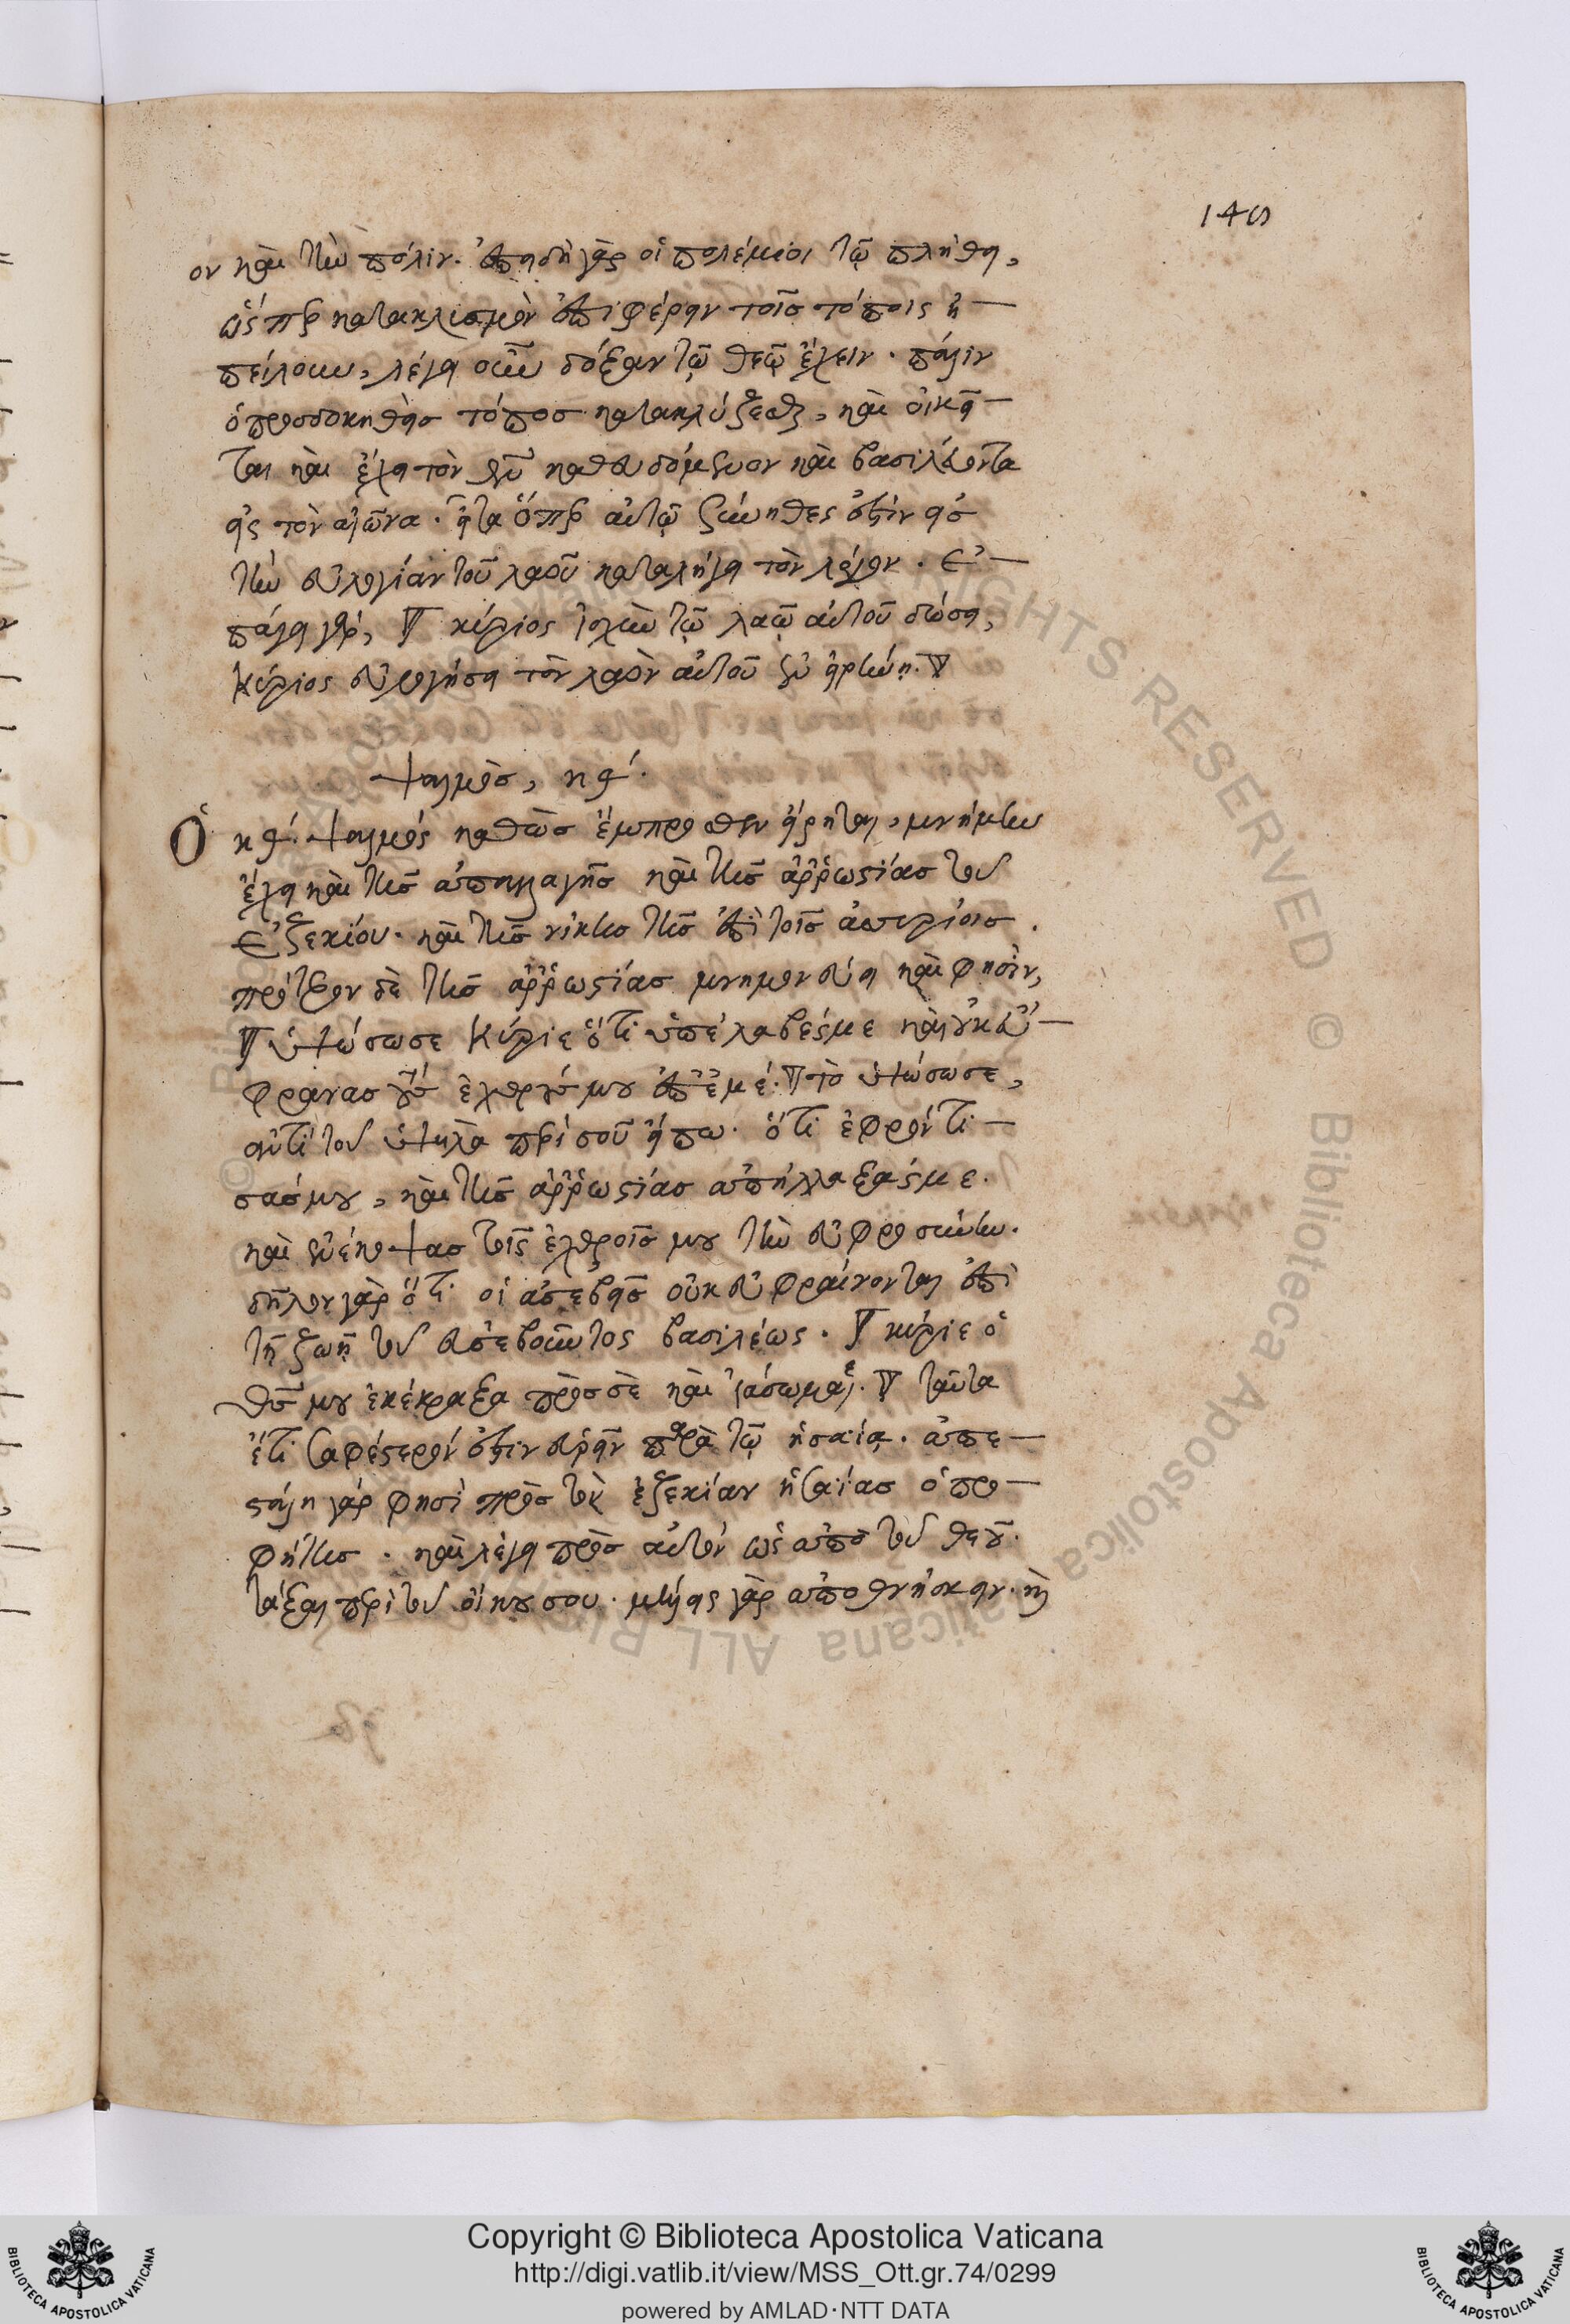 146
ον καὶ τὴν πόλιν. ἐπειδὴ γὰρ οἱ πολέμιοι τῷ πλήθει,
ὥσπερ κατακλισμὸν ἐπιφέρειν τοῖς τόποις ἠ-
πείλουν, λέγει οὖν δόξαν τῷ θεῷ ἔχειν. πάλιν
ὁ προσδοκηθεὶς τόπος κατακλύζεσθαι, καὶ οἰκεῖ-
ται καὶ ἔχει τὸν θν καθευδόμενον καὶ βασιλεύοντα
εἰς τὸν αἰῶνα. εἶτα ὅπερ αὐτῷ σύνηθες ἐστὶν εἰς
τὴν εὐλογίαν τοῦ λαοῦ καταλήγει τὸν λόγον. Ἐ-
πάγει γάρ, κύριος ἰσχὺν τῷ λαῷ αὐτοῦ δώσει,
κύριος εὐλογήσει τὸν λαὸν αὐτοῦ ἐν εἰρήνῃ.
ψαλμὸς, κθ΄.
Ὁ κθ΄. ψαλμὸς καθὼς ἔμπροσθεν εἴρηται, μνήμην
ἔχει καὶ τῆς ἀπαλλαγῆς καὶ τῆς ἀῤῥωστίας τοῦ
Ἐζεκίου. καὶ τῆς νίκης τῆς ἐπὶ τοῖς ἀσσυρίοις.
πρότερον δὲ τῆς ἀῤῥωστίας μνημονεύει καὶ φησὶν,
ὑψώσω σε κύριε ὅτι ὑπέλαβές με καὶ οὐκ εὔ-
φρανας τοὺς ἐχθρούς μου ἐπ' ἐμέ. τὸ ὑψώσω σε,
ἀντὶ τοῦ ὑψηλὰ περί σοῦ εἴπω. ὅτι ἐφρόντι-
σάς μου, καὶ τῆς ἀῤῥωστίας ἀπήλλαξάς με.
καὶ ἐνέκοψας τοῖς ἐχθροῖς μου τὴν εὐφροσύνην.
δῆλον γὰρ ὅτι οἱ ἀσεβεῖς οὐκ εὐφραίνονται ἐπὶ
τῇ ζωῇ τοῦ εὐσεβοῦντος βασιλέως. κύριε ὁ
θς μου ἐκέκραξα πρὸς σὲ καὶ ἰάσω με. ταῦτα
ἔτι σαφέστερόν ἐστιν εὑρεῖν παρὰ τῷ ἡσαΐᾳ. ἀπε-
στάλη γάρ φησὶ πρὸς τὸν ἐζεκίαν ἡσαΐας ὁ προ-
φήτης. καὶ λέγει πρὸς αὐτὸν ὡς ἀπὸ τοῦ θεοῦ.
τάξαι περὶ τοῦ οἴκου σου. μέλλεις γὰρ ἀποθνήσκειν. καὶ
© Biblioteca Apostolica Vaticana ALL RIGHTS RESERVED
Copyright © Biblioteca Apostolica Vaticana
http://digi.vatlib.it/view/MSS_Ott.gr.74/0299
powered by AMLAD·NTT DATA
BIBLIOTECA APOSTOLICA VATICANA
BIBLIOTECA APOSTOLICA VATICANA